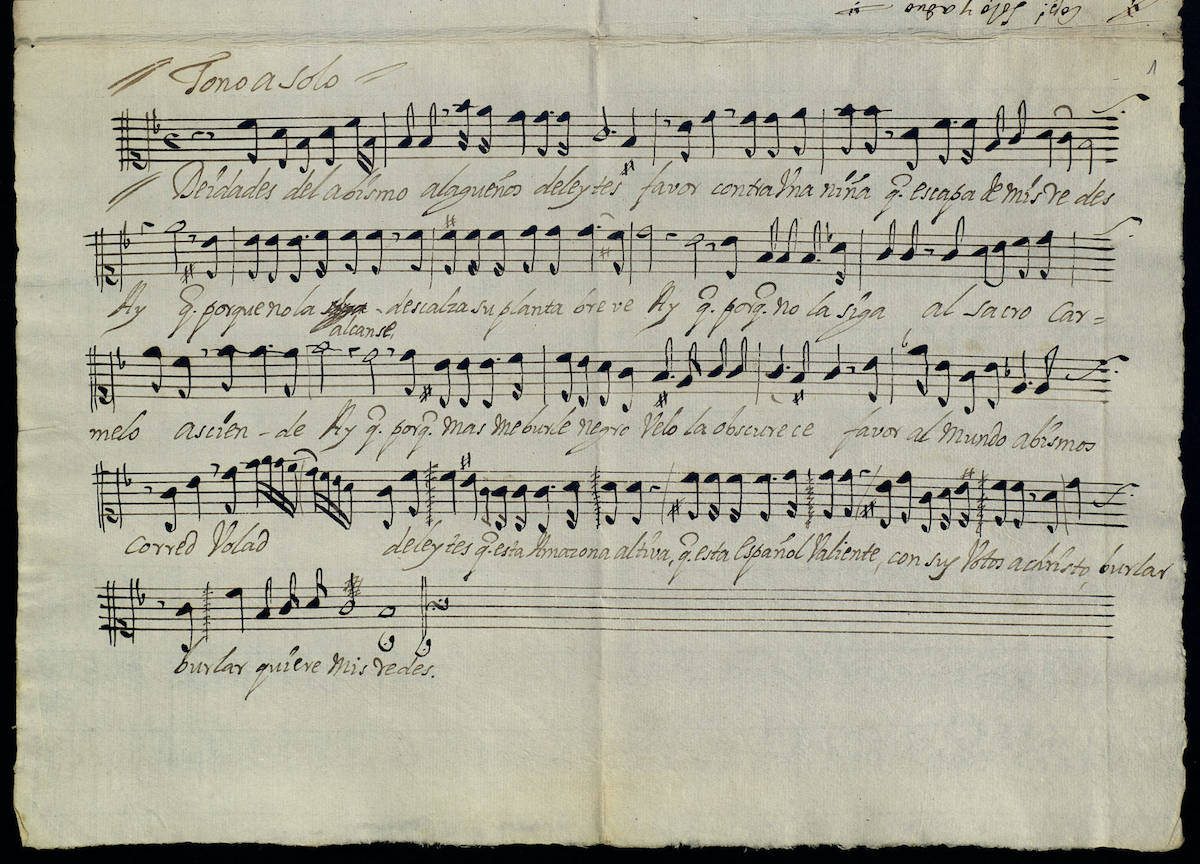 Cop.ˢ Solo y a duo
1
Tono a solo
Deidades del abismo alagueños deleytes favor contra Vna niña q. escapa de mis redes
Ay q. porque no la alcanse, descalza su planta breve Ay q. porq. no la siga al sacro Car=
melo ascien-de Ay q. porq. mas me burle negro Velo la obscurece favor al mundo abismos
corred Volad deleytes q. esta Amazona altiva, q. esta Español Valiente, con sus Votos a christo, burlar
burlar quiere mis redes.